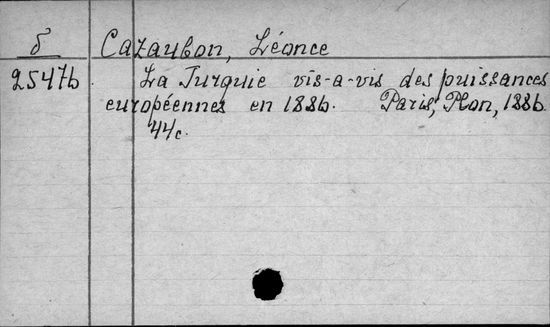 δ Cazaubon, Léonce
25476 La Turquie vis-a-vis des puissances
européennes en 1886. Paris, Plon, 1886
44c.